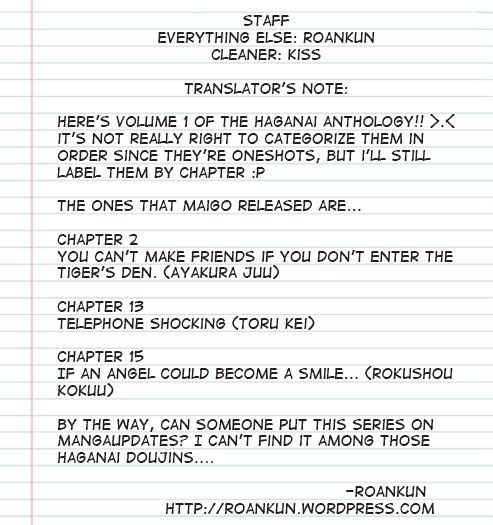 STAFF
EVERYTHING ELSE: ROANKUN
CLEANER: KISS
TRANSLATOR'S NOTE:
HERE'S VOLUME 1 OF THE HAGANAI ANTHOLOGY!! >.<
IT'S NOT REALLY RIGHT TO CATEGORIZE THEM IN
ORDER SINCE THEY'RE ONESHOTS, BUT I'LL STILL
LABEL THEM BY CHAPTER :P
THE ONES THAT MAIGO RELEASED ARE...
CHAPTER 2
YOU CAN'T MAKE FRIENDS IF YOU DON'T ENTER THE
TIGER'S DEN. (AYAKURA JUU)
CHAPTER 13
TELEPHONE SHOCKING (TORU KEI)
CHAPTER 15
IF AN ANGEL COULD BECOME A SMILE... (ROKUSHOU
KOKUU)
BY THE WAY, CAN SOMEONE PUT THIS SERIES ON
MANGAUPDATES? I CAN'T FIND IT AMONG THOSE
HAGANAI DOUJINS....
-ROANKUN
HTTP://ROANKUN.WORDPRESS.COM